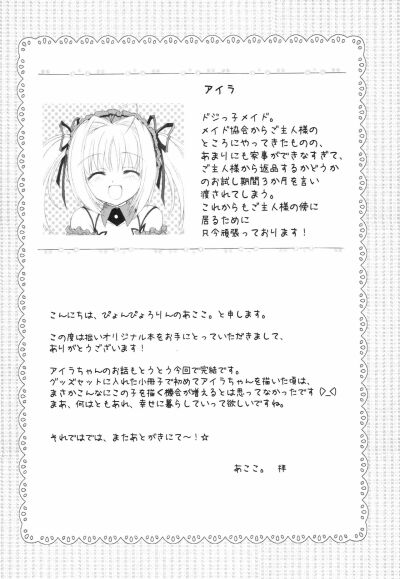 アイラ
ドジっ子メイド。
メイド協会からご主人様の
ところにやってきたものの、
あまりにも家事ができなすぎて、
ご主人様から返品するかどうか
のお試し期間3か月を言い
渡されてしまう。
これからもご主人様の傍に
居るために
只今頑張っております!
こんにちは、ぴょんぴょろりんのあここ。と申します。
この度は拙いオリジナル本をお手にとっていただきまして、
ありがとうございます!
アイラちゃんのお話もとうとう今回で完結です。
グッズセットに入れた小冊子で初めてアイラちゃんを描いた頃は、
まさかこんなにこの子を描く機会が増えるとは思ってなかったです(>_<)
まあ、何はともあれ、幸せに暮らしていって欲しいですね。
それではでは、またあとがきにて〜!☆
あここ。 拝